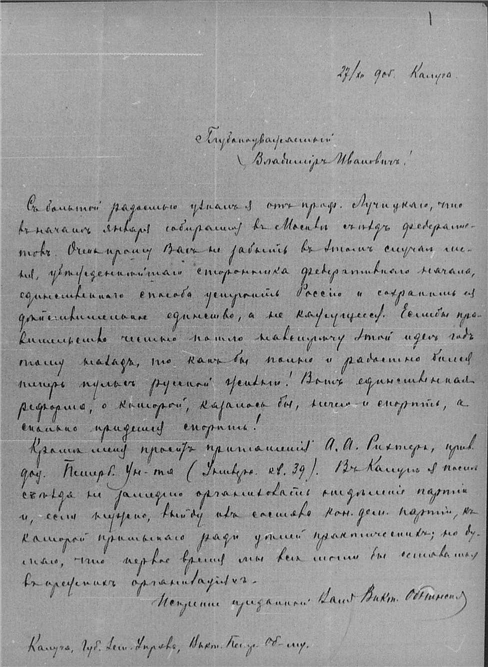 1
27/XII 905. Калуга.
Глубокоуважаемый
Владимiръ Ивановичъ!
Съ большой радостью узналъ я отъ проф. Лучицкаго, что
въ началѣ января собирается въ Москвѣ съѣздъ федералис-
товъ. Очень прошу Васъ не забыть въ этомъ случаѣ ме-
ня, убѣжденнѣйшаго сторонника федеративнаго начала,
единственнаго способа устроить Россiю и сохранить ея
дѣйствительное единство, а не кажущееся. Еслибы пра-
вительство честно пошло навстрѣчу этой идеѣ годъ
тому назадъ, то какъ бы полно и радостно бился
теперь пульсъ русской жизни! Вотъ единственная
реформа, о которой, казалось бы, нечего и спорить, а
сколько придется спорить!
Кромѣ меня проситъ приглашенiя А. А. Рихтеръ, прив.
доц. Петерб. Ун-та ( кв. 39). Въ Калугѣ я послѣ
съѣзда не замедлю организовать отдѣленiе партiи
и, если нужно, выйду изъ состава кон. дем. партiи, къ
которой примыкаю ради цѣлей практическихъ; но ду-
маю, что первое время мы всѣ могли бы оставаться
въ прежнихъ организацiяхъ.
Искренно преданный Вамъ Викт. Обнинскiй
Калуга, Губ. Зем. Управа, Викт. Петр. Об-му.